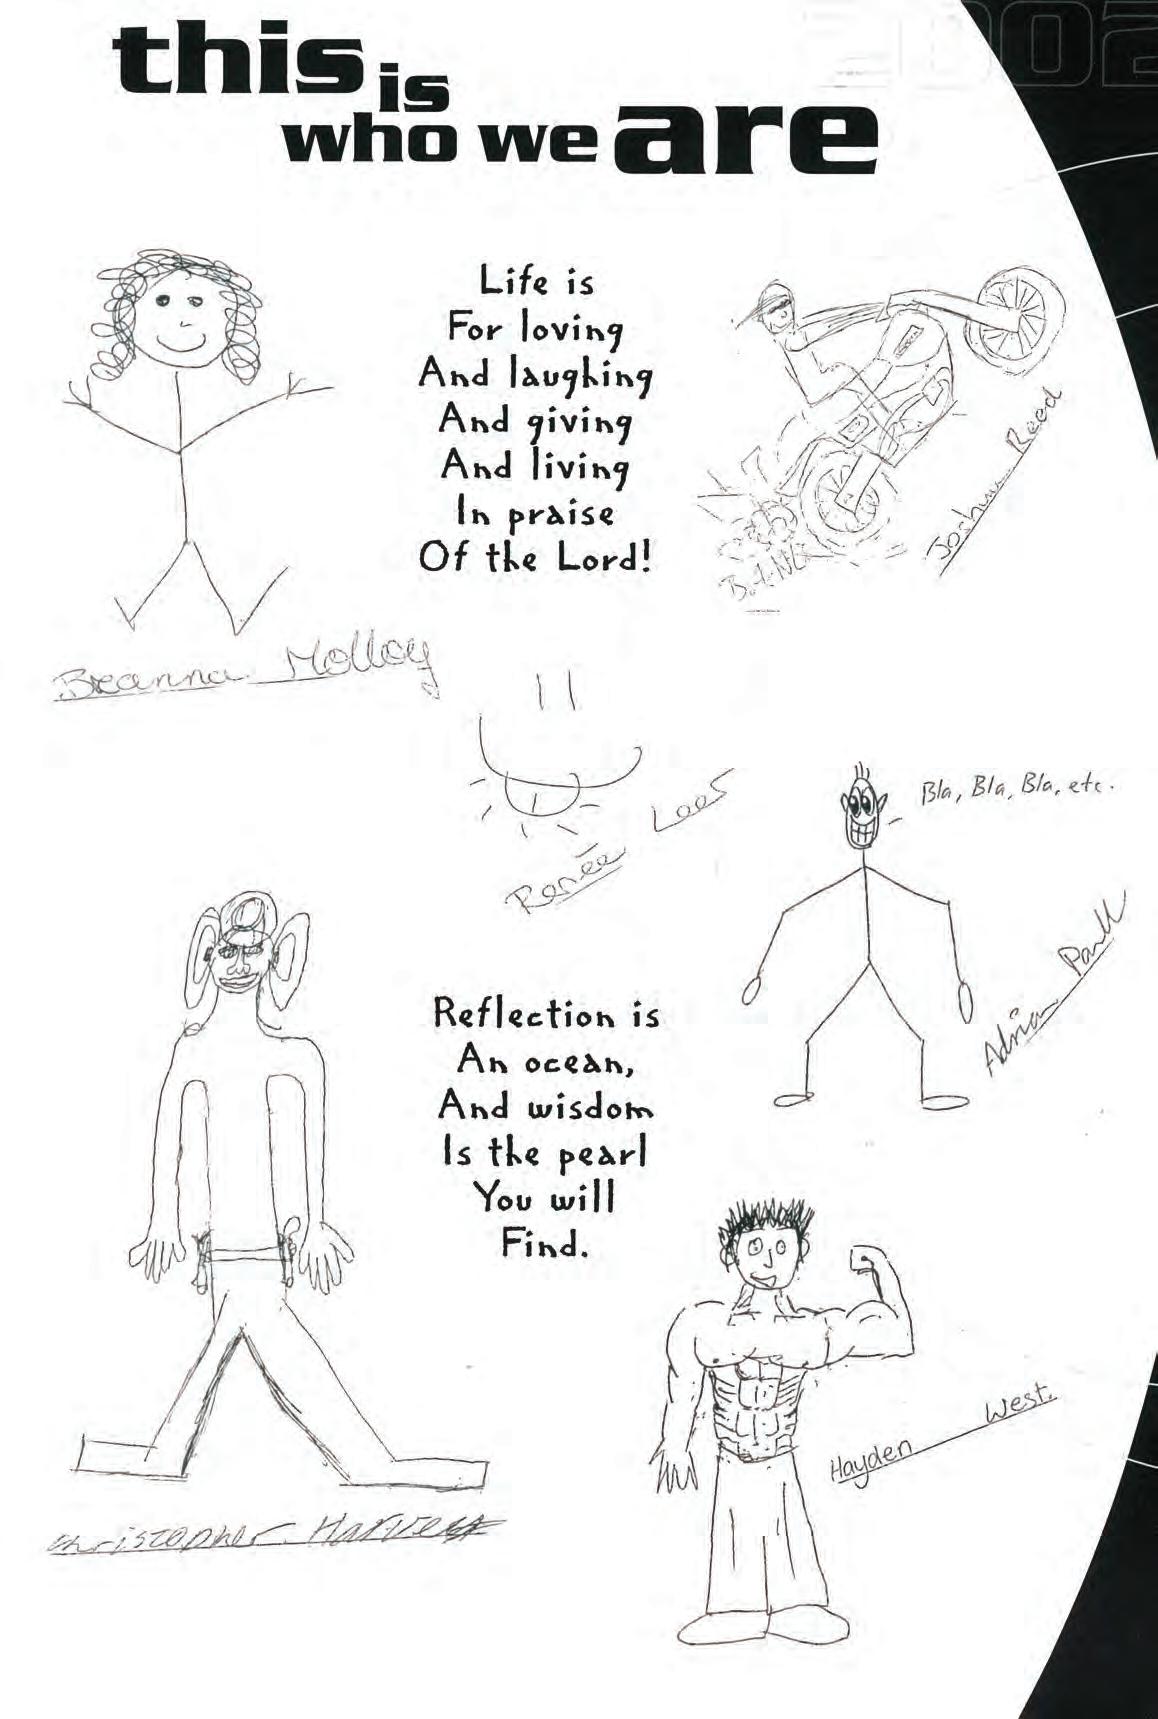 2002
this is
who we are
Life is
For loving
And laughing
And giving
And living
In praise
Of the Lord!
Joshua Reed
Breanna Molloy
Renée Lees
Bla, Bla, Bla, etc.
Adrian
Reflection is
An ocean,
And wisdom
Is the pearl
You will
Find.
Hayden West.
Christopher Harvey